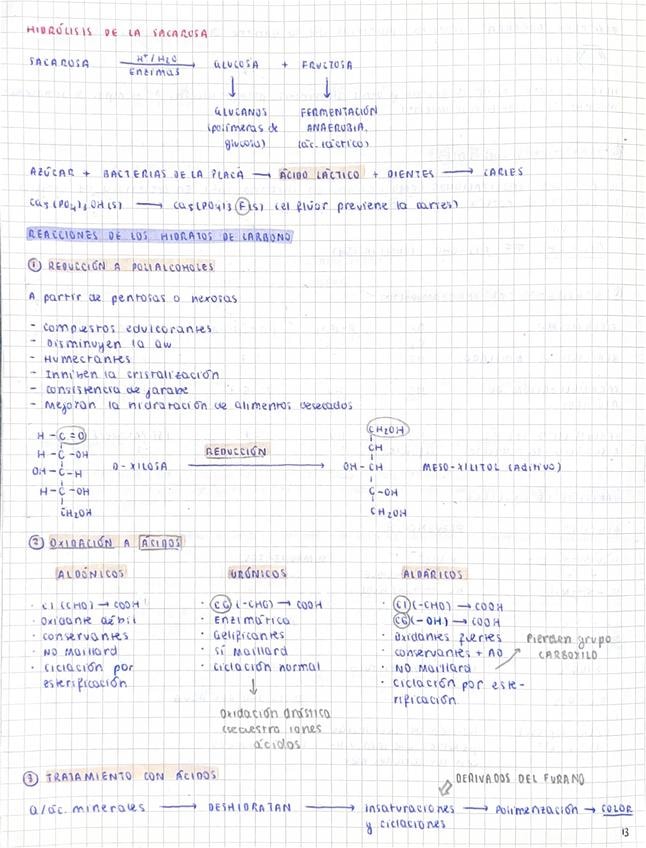 HIDRÓLISIS DE LA SACAROSA
SACAROSA H⁺/H₂O Enzimas → GLUCOSA + FRUCTOSA
↓ ↓
GLUCANOS FERMENTACIÓN
(polímeros de ANAEROBIA.
glucosa) (ác. láctico)
AZÚCAR + BACTERIAS DE LA PLACA → ÁCIDO LÁCTICO + DIENTES → CARIES
Ca₅(PO₄)₃OH(s) → Ca₅(PO₄)3 F(s) (el flúor previene la caries)
REACCIONES DE LOS HIDRATOS DE CARBONO
① REDUCCIÓN A POLIALCOHOLES
A partir de pentosas o hexosas
- Compuestos edulcorantes
- Disminuyen la aw
- Humectantes
- Inhiben la cristalización
- Consistencia de jarabe
- Mejoran la hidratación de alimentos desecados
H - C = O CH₂OH
H - C - OH CH
OH - C - H D-XILOSA REDUCCIÓN → OH - CH MESO-XILITOL (Aditivo)
H - C - OH C - OH
CH₂OH CH₂OH
② OXIDACIÓN A ÁCIDOS
ALDÓNICOS URÓNICOS ALDÁRICOS
· C1 (CHO) → COOH · C6 (-CHO) → COOH · C1 (-CHO) → COOH
· Oxidante débil · Enzimática C6 (-OH) → COOH
· Conservantes · Gelificantes · Oxidantes fuertes Pierden grupo
· NO Maillard · Sí Maillard · Conservantes + AO CARBOXILO
· Ciclación por · Ciclación normal · NO Maillard
esterificación ↓ · Ciclación por este-
Oxidación drástica rificación
(secuestra iones
ácidos
③ TRATAMIENTO CON ÁCIDOS
DERIVADOS DEL FURANO
a/ác. minerales → DESHIDRATAN → Insaturaciones → Polimerización → COLOR
y ciclaciones
13